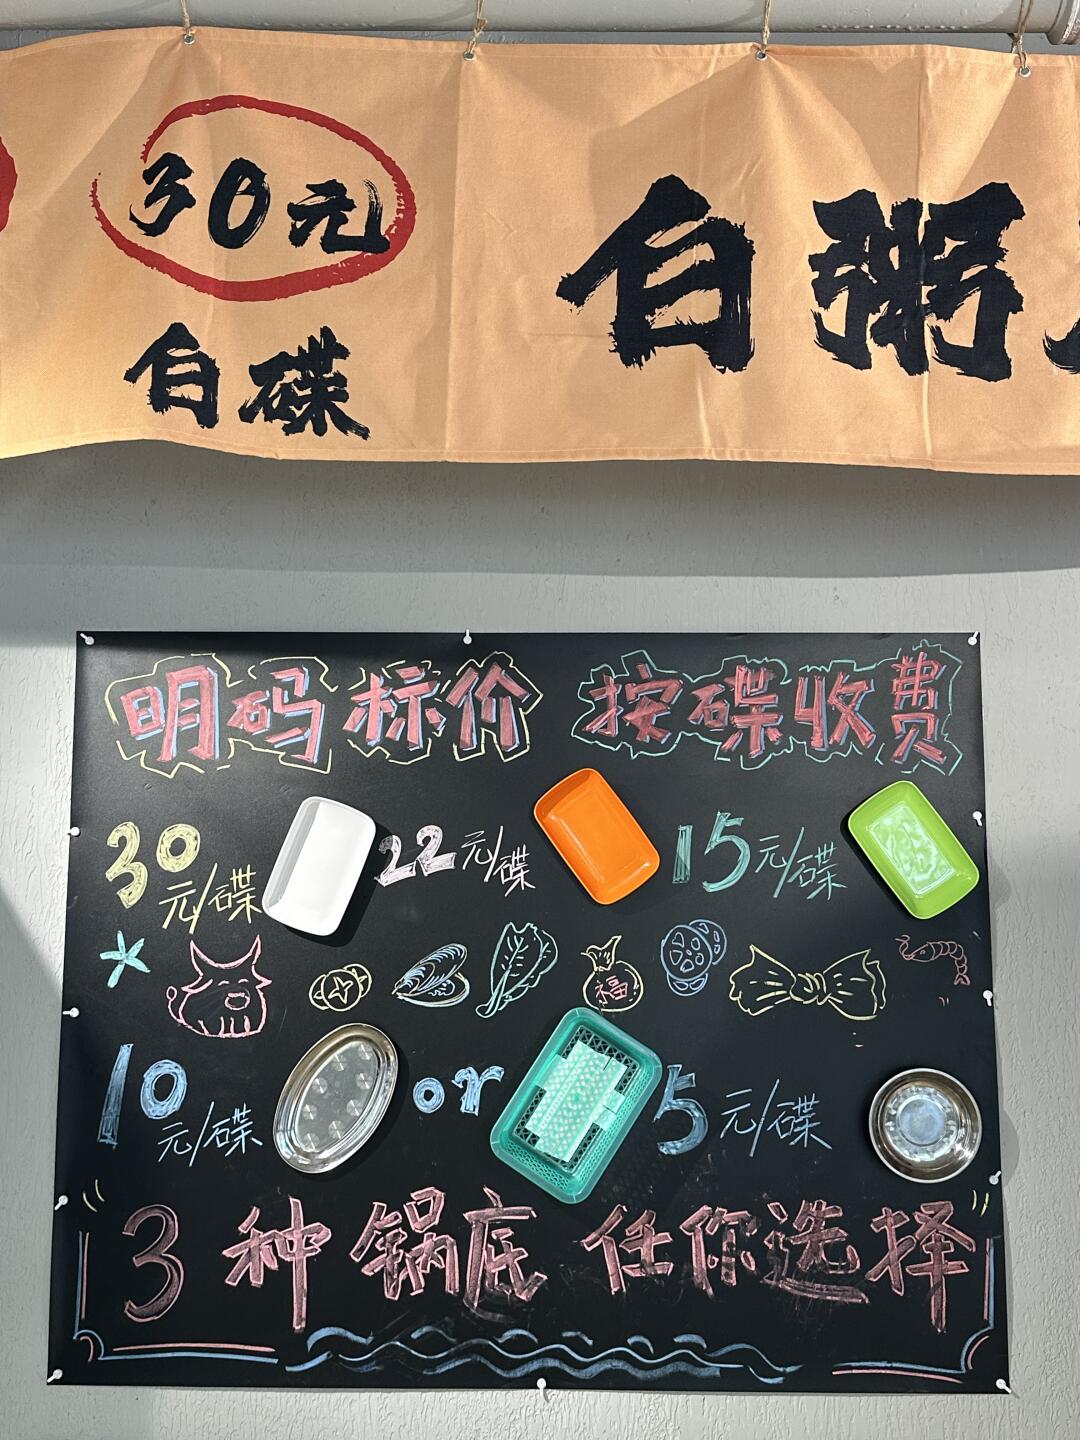 30元
白碟
白粥
明码标价 按碟收费
30元/碟 22元/碟 15元/碟
福
10元/碟 or 5元/碟
3种锅底 任你选择